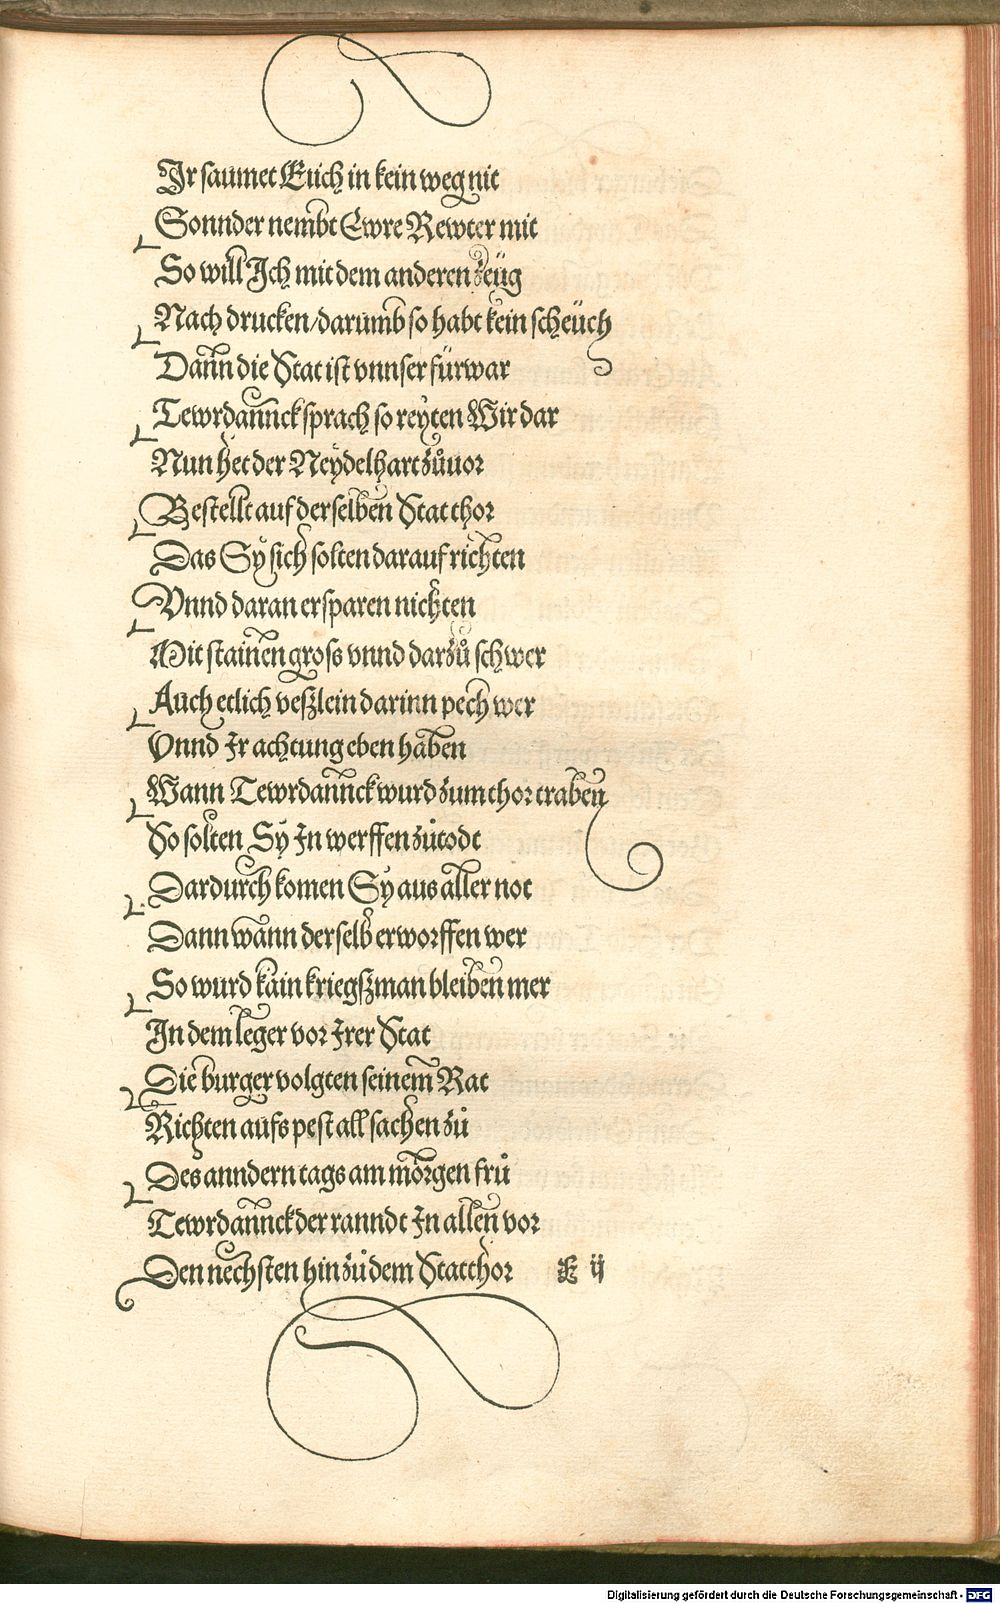 Jr saumet Euch in kein weg nit
Sonnder nembt Ewre Rewter mit
So will Jch mit dem anderen zeüg
Nach drucken/darumb so habt kein scheüch
Dann die Stat ist vnnser fürwar
Tewrdannck sprach so reyten Wir dar
Nun het der Neydelhart zůuor
Bestellt auf derselben Stat thor
Das Sy sich solten darauf richten
Vnnd daran ersparen nichten
Mit stainen gross vnnd darzů schwer
Auch etlich veszlein darinn pech wer
Vnnd Jr achtung eben haben
Wann Tewrdannck wurd zum thor traben
So solten Sy Jn werffen zůtodt
Dardurch komen Sy aus aller not
Dann wann derselb erworffen wer
So wurd kain kriegszman bleiben mer
Jn dem leger vor Jrer Stat
Die burger volgten seinem Rat
Richten aufs pest all sachen zů
Des anndern tags am morgen frů
Tewrdannck der ranndt Jn allen vor
Den nechsten hin zů dem Statthor ij
Digitalisierung gefördert durch die Deutsche Forschungsgemeinschaft - DFG